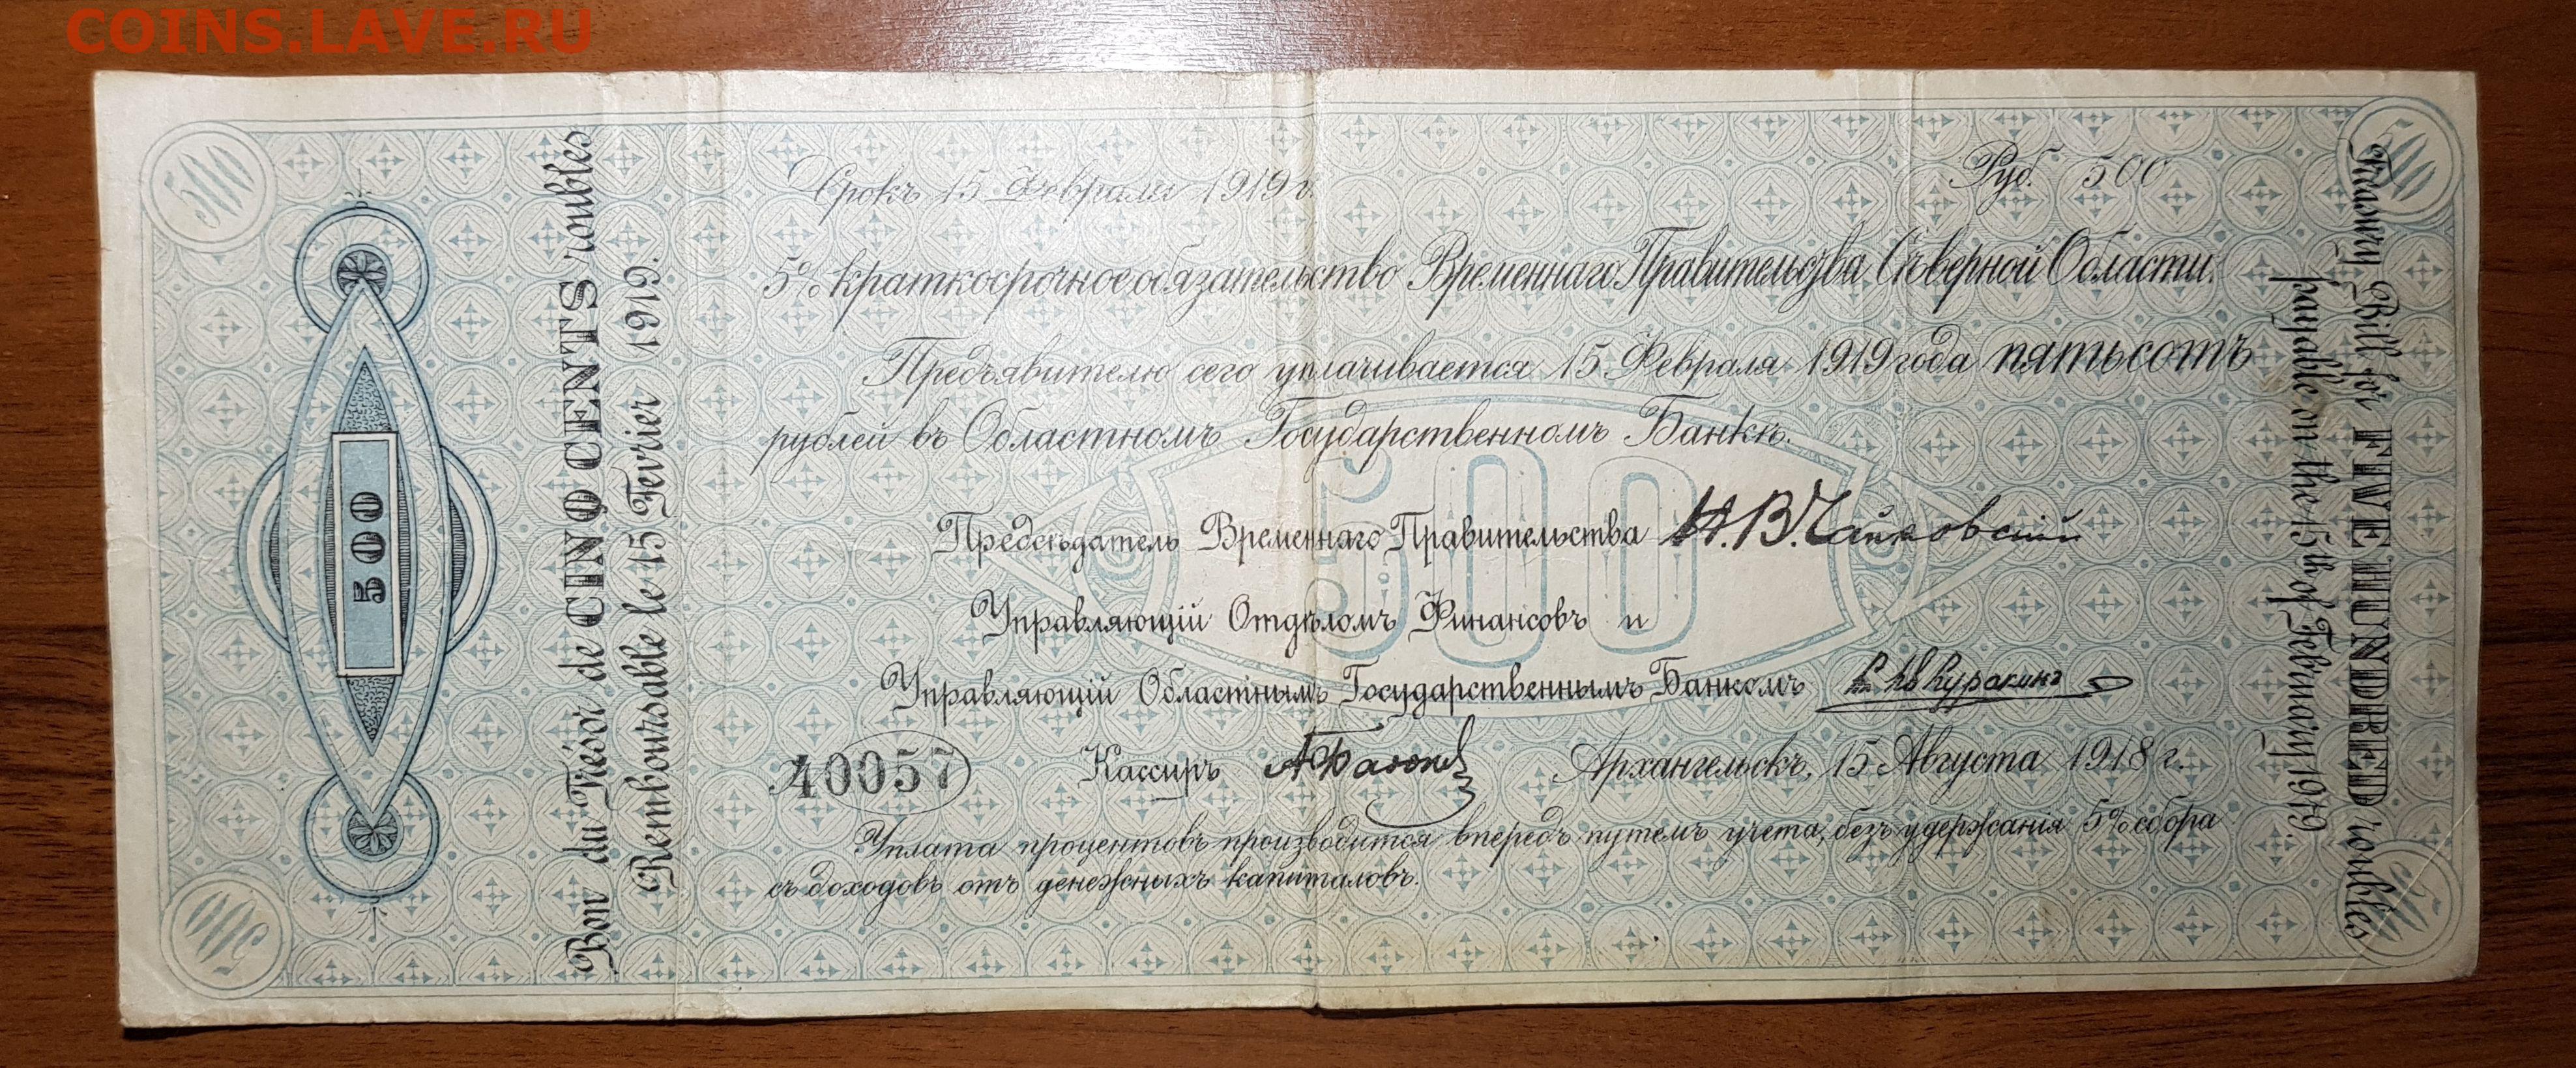 COINS.LAVE.RU
500
500
Срокъ 15 Февраля 1919 г.
Руб. 500
5% краткосрочное обязательство Временнаго Правительства Сѣверной Области.
Предъявителю сего уплачивается 15 Февраля 1919 года пятьсотъ
рублей въ Областномъ Государственномъ Банкѣ.
500
Предсѣдатель Временнаго Правительства Н.В.Чайковскій
Управляющій Отдѣломъ Финансовъ и
Управляющій Областнымъ Государственнымъ Банкомъ Куракинъ
40057
Кассиръ
Архангельскъ, 15 Августа 1918 г.
Уплата процентовъ производится впередъ путемъ учета, безъ удержанія 5% сбора
съ доходовъ отъ денежныхъ капиталовъ.
500
Bon du Trésor de CINQ CENTS roubles
Remboursable le 15 Fevrier 1919.
Treasury Bill for FIVE HUNDRED roubles
payable on the 15th of February 1919.
500
500